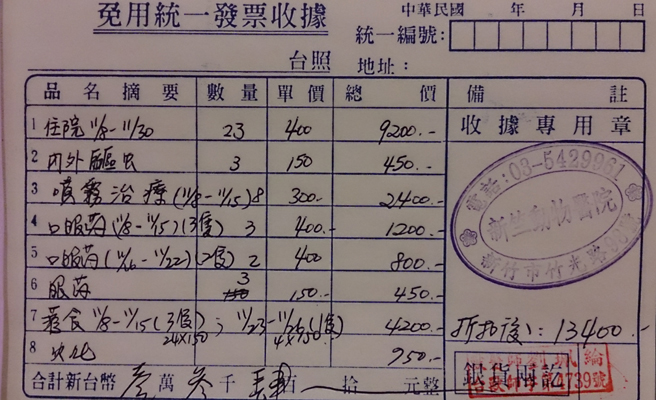 免用統一發票收據
中華民國 年 月 日
統一編號:
台照 地址:
品名摘要 數量 單價 總價 備註
1 住院 11/8-11/30 23 400 9200.- 收據專用章
2 內外驅虫 3 150 450.-
3 噴霧治療(11/8-11/15) 8 300- 2400.-
4 口服葯(11/8-11/15)(3隻) 3 400.- 1200.-
5 口服葯(11/16-11/22)(2隻) 2 400 800.-
6 眼葯 3 150.- 450.-
7 養食 11/8-11/15(3隻); 11/23-11/26(1隻) 4200.-
24x150 4x150
8 火化 950.-
合計新台幣 壹萬參千肆百 拾 元整
電話:03-5429961
新竺動物醫院
新竹市竹光路
折扣後: 13400.-
銀貨両訖
4739號